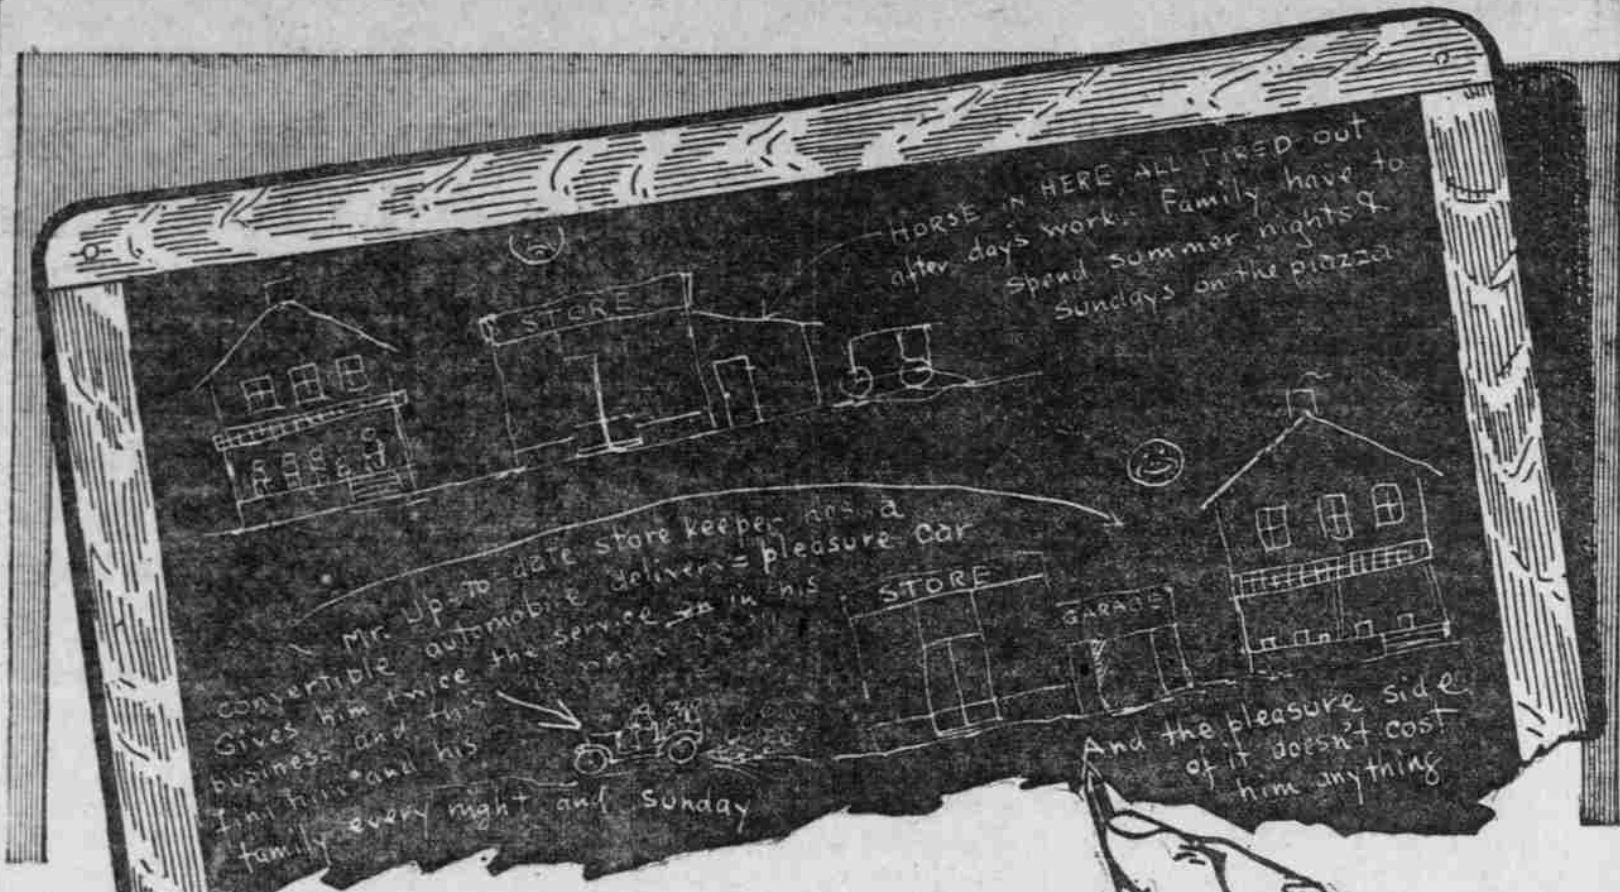 HORSE IN HERE ALL TIRED OUT
after day's work. Family have to
spend summer nights &
Sundays on the piazza
STORE
Mr. Up-to-date store keeper has a
convertible automobile delivery = pleasure car
Gives him twice the service in his
business and this is
find him and his
family every night and Sunday
STORE
GARAGE
And the pleasure side
of it doesn't cost
him anything